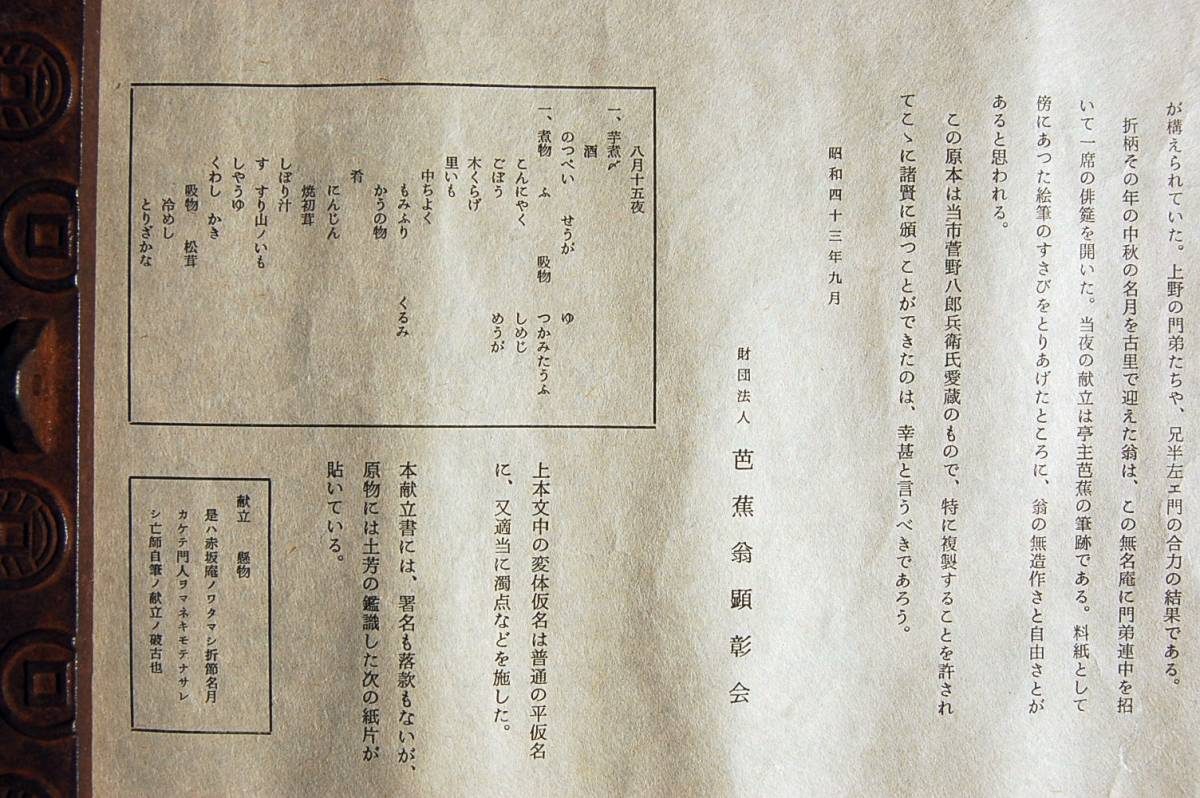 が構えられていた。上野の門弟たちや、兄半左ェ門の合力の結果である。
折柄その年の中秋の名月を古里で迎えた翁は、この無名庵に門弟連中を招
いて一席の俳筵を開いた。当夜の献立は亭主芭蕉の筆跡である。料紙として
傍にあつた絵筆のすさびをとりあげたところに、翁の無造作さと自由さとが
あると思われる。
この原本は当市菅野八郎兵衛氏愛蔵のもので、特に複製することを許され
てこゝに諸賢に頒つことができたのは、幸甚と言うべきであろう。
昭和四十三年九月
財団法人 芭蕉翁顕彰会
八月十五夜
一、芋煮〆
酒
のつぺい せうが ゆ
一、煮物 ふ 吸物 つかみたうふ
こんにやく しめじ
ごぼう めうが
木くらげ
里いも
中ちよく
もみふり くるみ
かうの物
肴
にんじん
焼初茸
しぼり汁
す すり山ノいも
しやうゆ
くわし かき
吸物 松茸
冷めし
とりざかな
上本文中の変体仮名は普通の平仮名
に、又適当に濁点などを施した。
本献立書には、署名も落款もないが、
原物には土芳の鑑識した次の紙片が
貼いている。
献立 懸物
是ハ赤坂庵ノワタマシ折節名月
カケテ門人ヲマネキモテナサレ
シ亡師自筆ノ献立ノ破古也